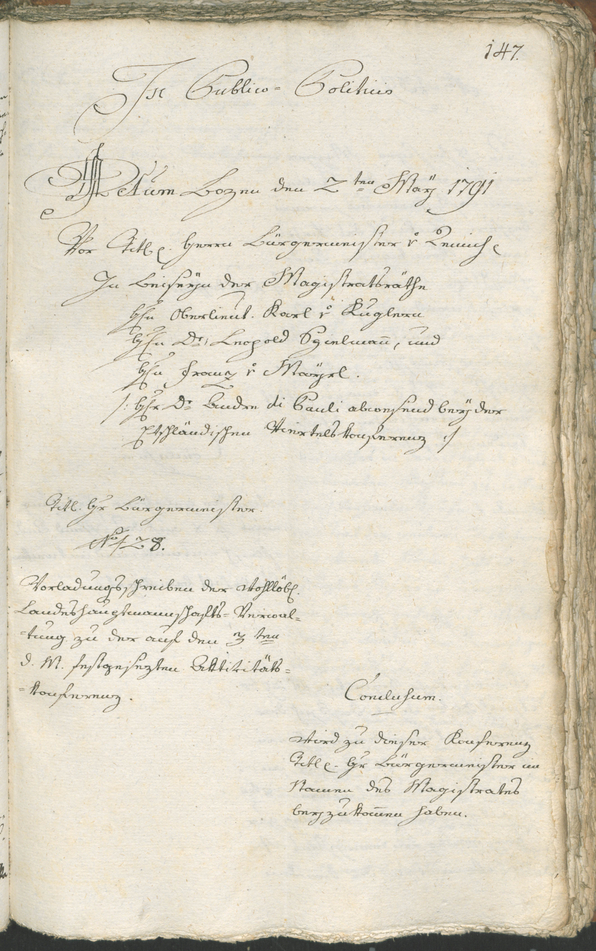 147.
In Publico-Politicis
Actum Bozen den 2ten Maÿ 1791
Vor Titl. Herrn Bürgermeister v.
In Beiseyn der Magistratsräthe
Hrn Oberlieut. Karl v. Kuglern
Hrn Dr. Leopold Spielmañ, und
Hrn Franz v. Mayrl.
/: Hr Dr. Andre di Pauli abwesend beÿ der
Etschländischen Viertelskonferenz :/
Titl. Hr Bürgermeister.
No 128.
Vorladungsschreiben der Wohllöbl.
Landeshauptmannschafts-Verwal-
tung zu der auf den 3ten
d. M. festgesezten Aktivitäts-
konferenz.
Conclusum.
Wird zu dieser Konferenz
Titl. Hr Bürgermeister im
Namen des Magistrates
beyzukom̄en haben.